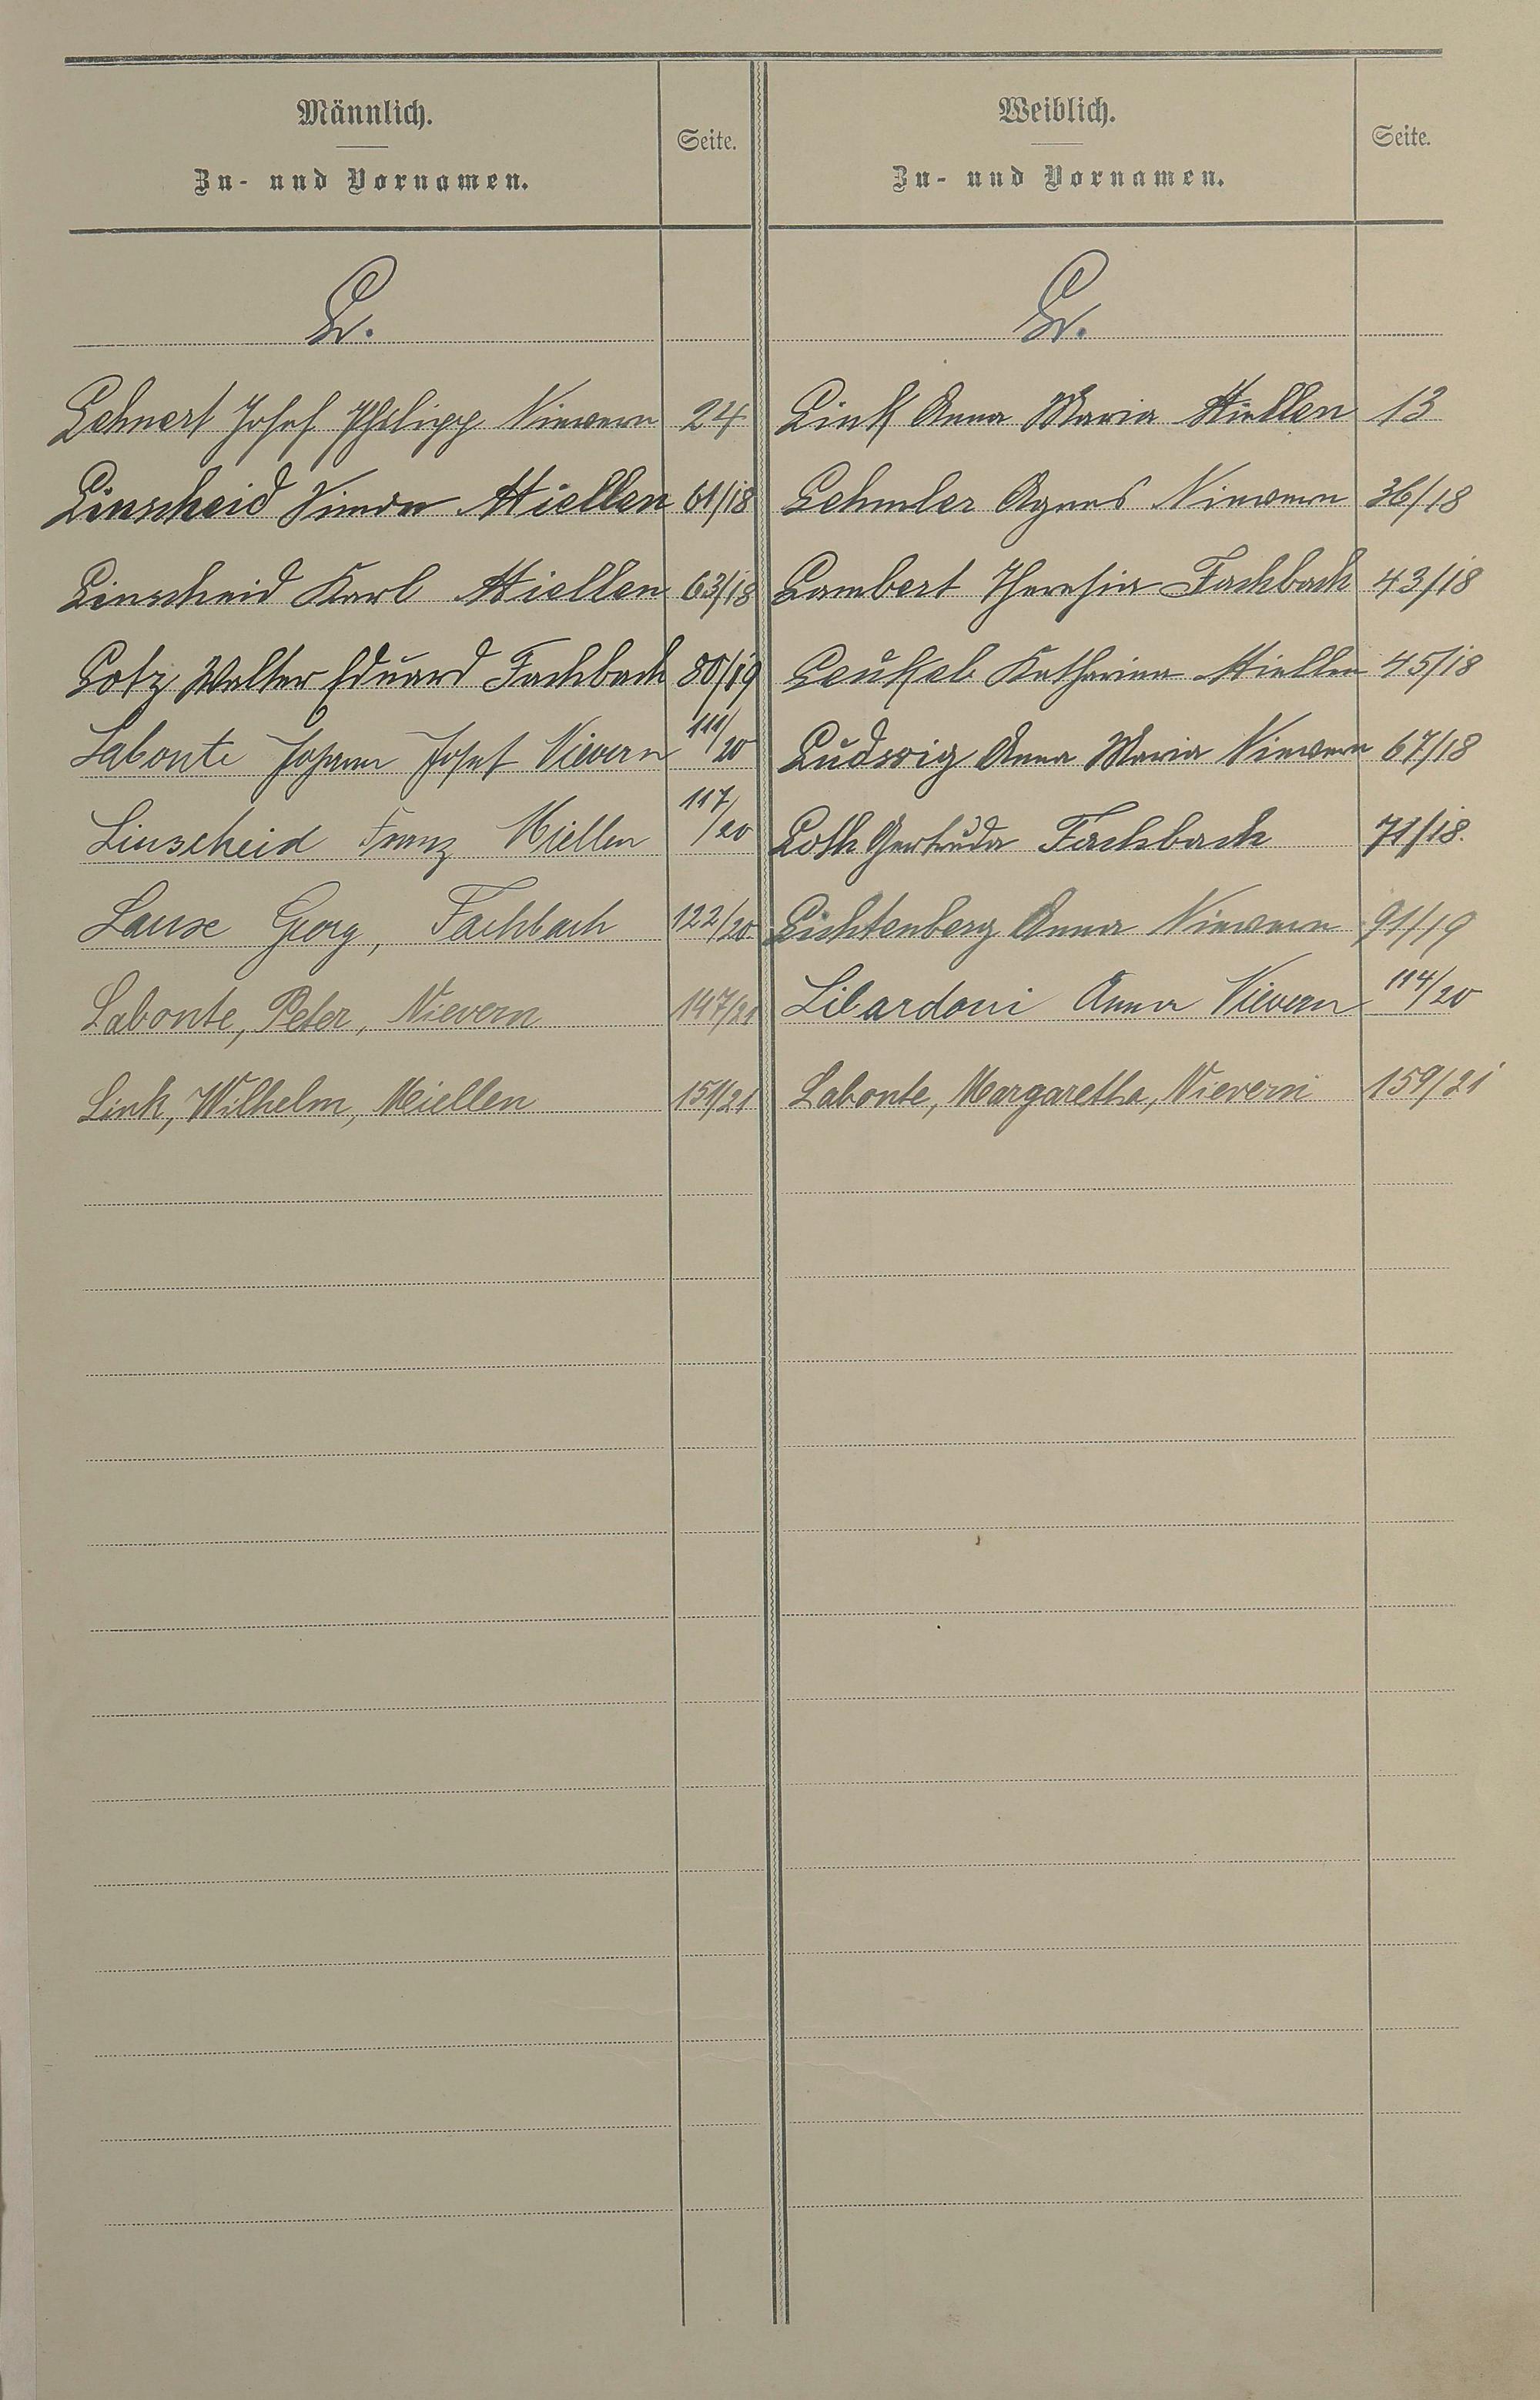 Männlich.
Zu- und Vornamen.
Seite.
L.
Lehnert Josef Philipp Nievern 24
Linscheid Simon Miellen 61/18
Linscheid Karl Miellen 63/18
Lotz Walter Eduard Fachbach 80/19
Labonte Johann Josef Nievern 111/20
Linscheid Franz Miellen 117/20
Lause Georg, Fachbach 122/20
Labonte, Peter, Nievern 147/21
Link, Wilhelm, Miellen 151/21
Weiblich.
Zu- und Vornamen.
Seite.
L.
Link Anna Maria Miellen 13
Lehmler Agnes Nievern 36/18
Lambert Theresia Fachbach 43/18
Leukel Katharina Miellen 45/18
Ludwig Anna Maria Nievern 67/18
Loth Gertruda Fachbach 71/18.
Lichtenberg Anna Nievern 91/19
Libardoni Anna Nievern 114/20
Labonte, Margaretha, Nievern 159/21